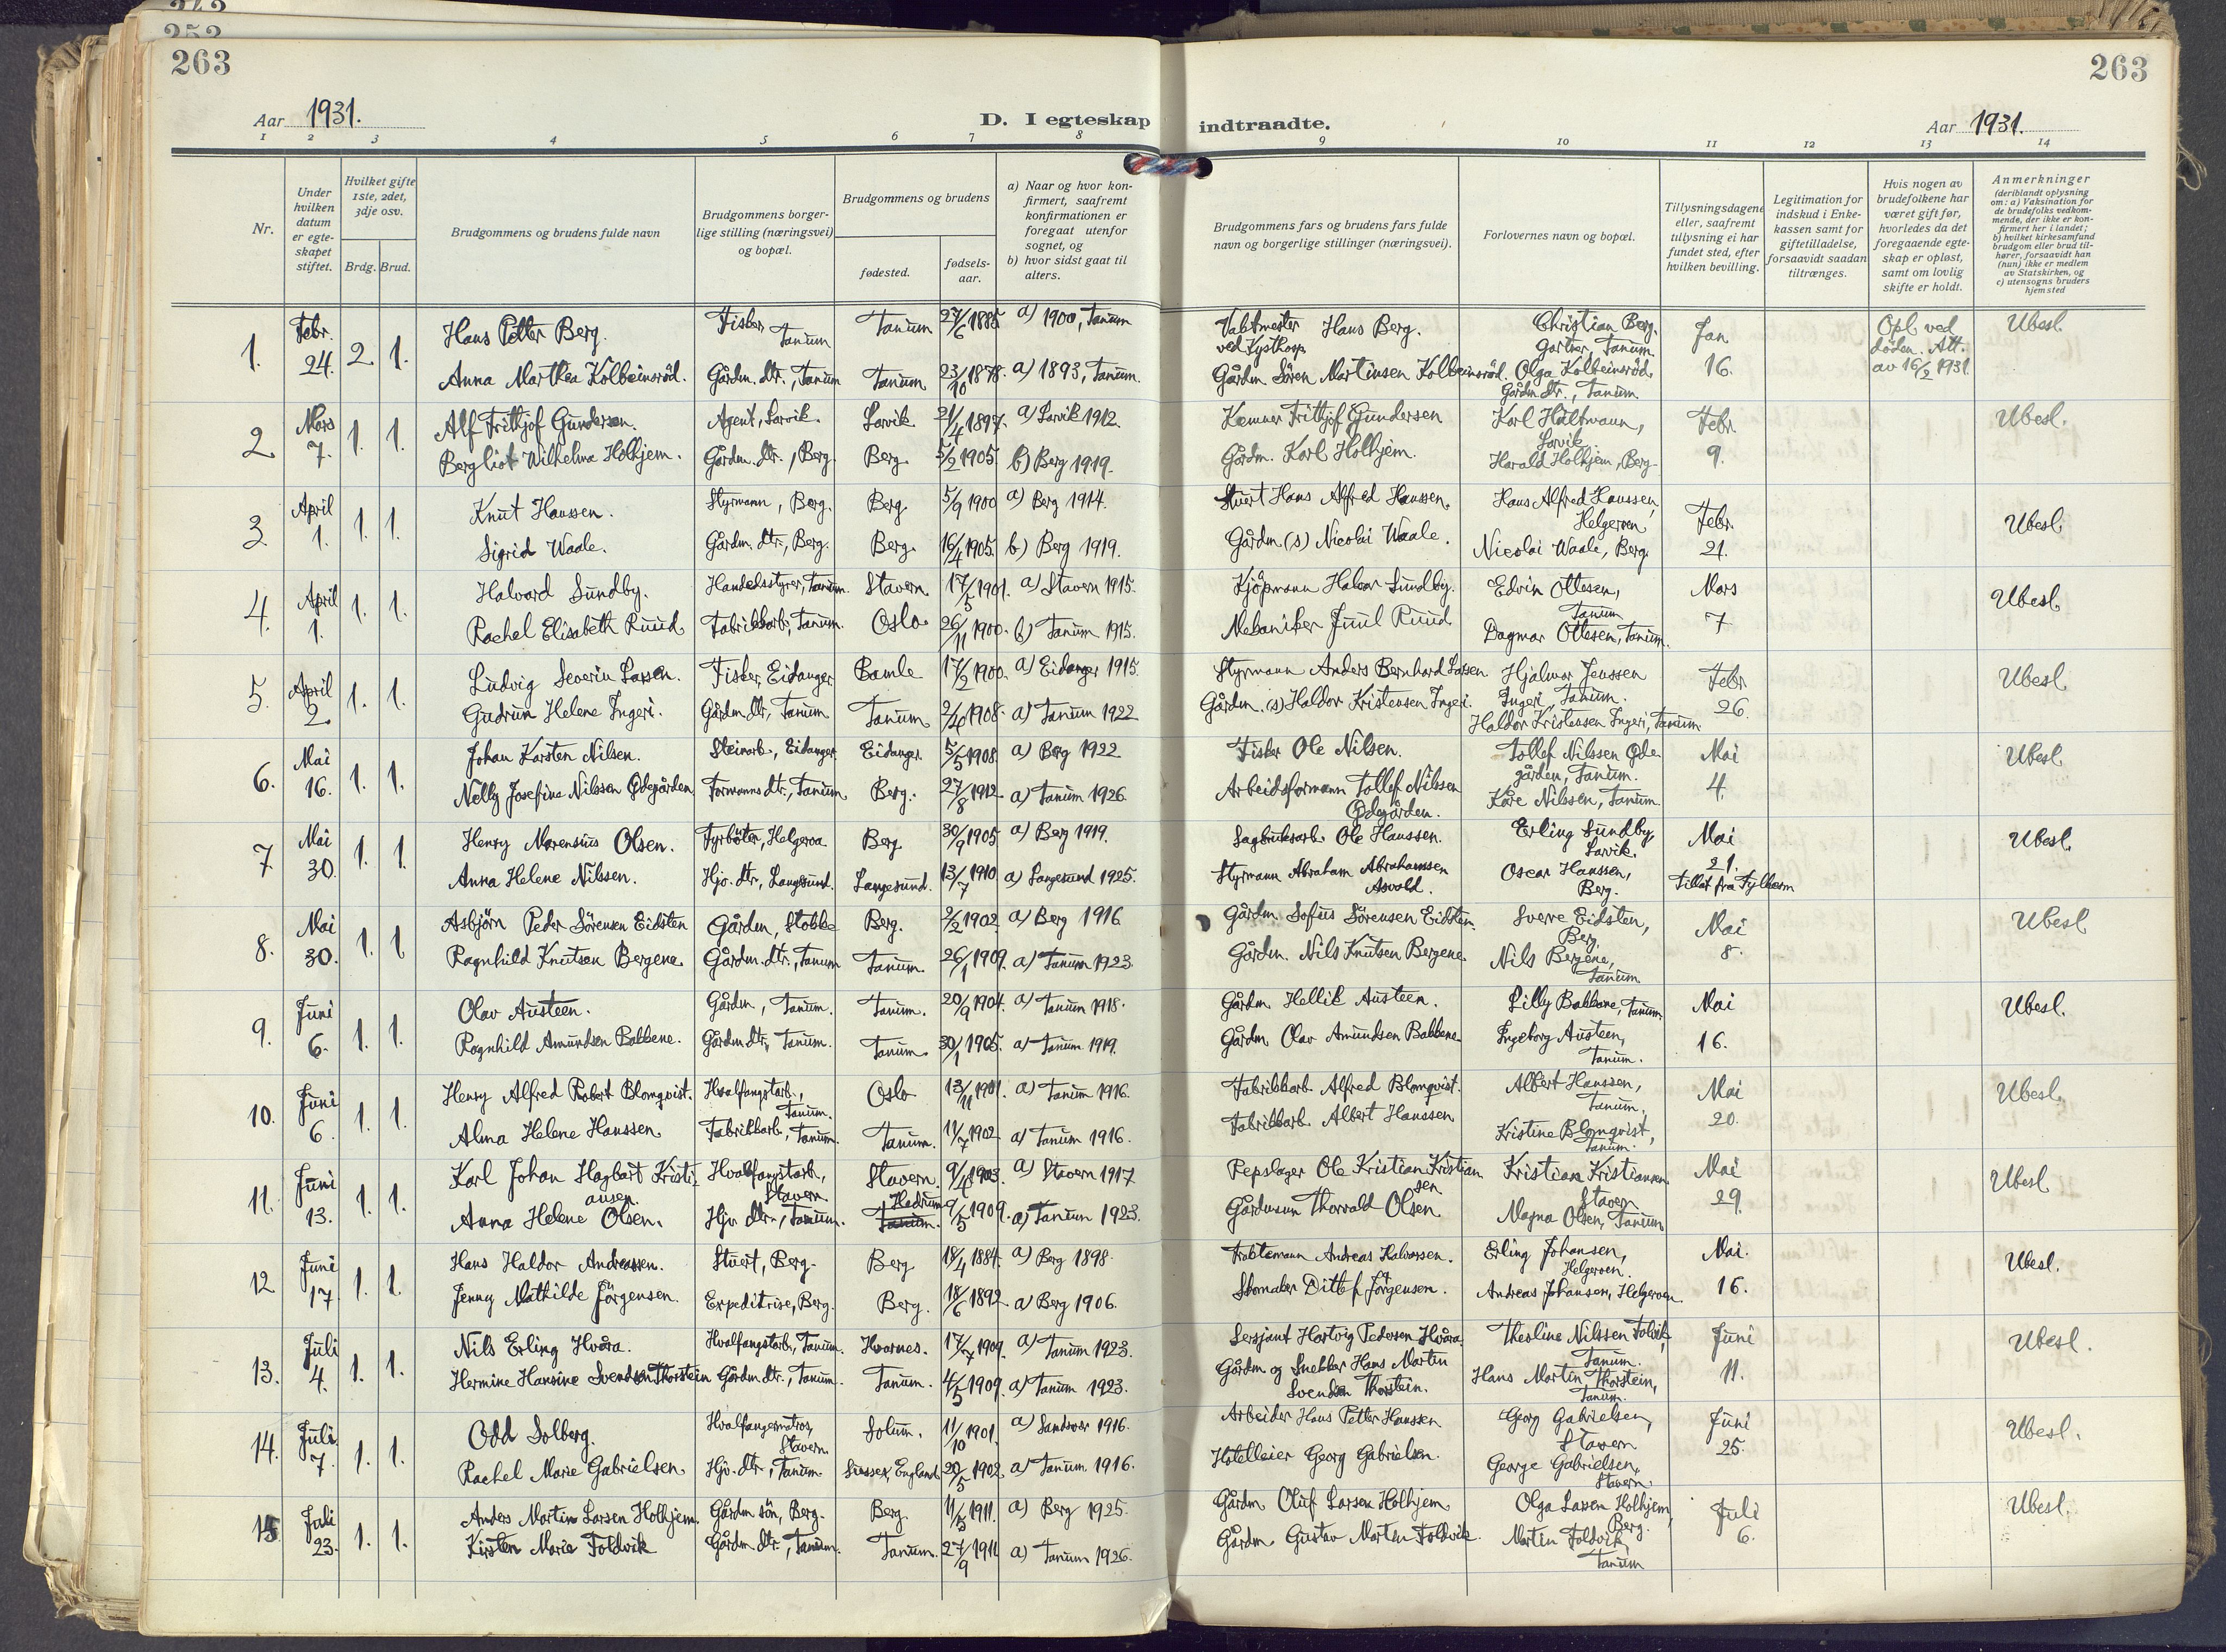 263
263
Aar 1931.
D. I egteskap indtraadte.
Aar 1931.
1 2 3 4 5 6 7 8 9 10 11 12 13 14
Nr.
Under hvilken datum er egteskapet stiftet.
Hvilket gifte 1ste, 2det, 3dje osv.
Brdg. Brud.
Brudgommens og brudens fulde navn
Brudgommens borgerlige stilling (næringsvei) og bopæl.
Brudgommens og brudens
fødested.
fødselsaar.
a) Naar og hvor konfirmert, saafremt konfirmationen er foregaat utenfor sognet, og
b) hvor sidst gaat til alters.
Brudgommens fars og brudens fars fulde navn og borgerlige stillinger (næringsvei).
Forlovernes navn og bopæl.
Tillysningsdagene eller, saafremt tillysning ei har fundet sted, efter hvilken bevilling.
Legitimation for indskud i Enkekassen samt for giftetilladelse, forsaavidt saadan tiltrænges.
Hvis nogen av brudefolkene har været gift før, hvorledes da det foregaaende egteskap er opløst, samt om lovlig skifte er holdt.
Anmerkninger (deriblandt oplysning om: a) Vaksination for de brudefolks vedkommende, der ikke er konfirmert her i landet; b) hvilket kirkesamfund brudgom eller brud tilhører, forsaavidt han (hun) ikke er medlem av Statskirken, og c) utensogns bruders hjemsted
1. Febr. 24. 2. 1. Hans Petter Berg. Fisker, Tanum Tanum 27/6 1885 a) 1900, Tanum Vaktmester ved Kystkorps Hans Berg. Christian Berg. Gartner, Tanum Jan. 16. Opl. ved døden. Att. av 16/2 1931. Ubesl.
Anna Marthea Kolbeinsröd. Gårdm. dtr., Tanum Tanum 23/10 1878. a) 1893, Tanum. Gårdm. Sören Martinsen Kolbeinsröd. Olga Kolbeinsröd, Gårdm. dtr., Tanum.
2. Mars 7. 1. 1. Alf Frithjof Gundersen. Agent, Larvik. Larvik 21/4 1897. a) Larvik 1912. Kemner Frithjof Gundersen Karl Holtmann, Larvik Febr. 9. Ubesl.
Bergliot Wilhelma Holhjem. Gårdm. dtr., Berg. Berg. 5/2 1905. b) Berg 1919. Gårdm. Karl Holhjem. Harald Holhjem, Berg.
3. April 1. 1. 1. Knut Hanssen. Styrmann, Berg. Berg. 5/9 1900 a) Berg 1914. Stuert Hans Alfred Hanssen. Hans Alfred Hanssen, Helgeroen Febr. 21. Ubesl.
Sigrid Waale. Gårdm. dtr., Berg. Berg. 16/4 1905. b) Berg 1919. Gårdm. (s) Nicolai Waale. Nicolai Waale, Berg.
4. April 1. 1. 1. Halvard Sundby. Handelsstyrer, Tanum. Stavern. 17/5 1901. a) Stavern 1915. Kjöpmann Halvor Sundby. Edvin Ottesen, Tanum Mars 7 Ubesl.
Rachel Elisabeth Ruud. Fabrikkarb., Tanum. Oslo. 26/11 1900. b) Tanum 1915. Mekaniker Juul Ruud Dagmar Ottesen, Tanum.
5. April 2. 1. 1. Ludvig Severin Larsen. Fisker, Eidanger. Bamle 17/2 1900. a) Eidanger 1915. Styrmann Anders Bernhard Larsen Hjalmar Jenssen Ingeri, Tanum. Febr. 26. Ubesl.
Gudrun Helene Ingeri. Gårdm. dtr., Tanum Tanum 2/10 1908. a) Tanum 1922 Gårdm. (s) Haldor Kristensen Ingeri. Haldor Kristensen Ingeri, Tanum
6. Mai 16. 1. 1. Johan Karsten Nilsen. Steinarb., Eidanger. Eidanger. 5/5 1908. a) Berg 1922 Fisker Ole Nilsen. Tollef Nilssen Ødegården, Tanum. Mai 4. Ubesl.
Nelly Josefine Nilssen Ødegården Formanns dtr., Tanum. Berg. 27/8 1912. a) Tanum 1926. Arbeidsformann Tollef Nilssen Ødegården. Kåre Nilssen, Tanum.
7 Mai 30. 1. 1. Henry Marensius Olsen. Fyrböter, Helgeroa Berg 30/9 1905 a) Berg 1919. Sagbruksarb. Ole Hanssen. Erling Sundby, Larvik. Mai 21. Tillat fra Fylkesm Ubesl.
Anna Helene Nilssen. Hjv. dtr., Langesund. Langesund. 13/7 1910 a) Langesund 1925. Styrmann Abraham Abrahamssen Asvold. Oscar Hanssen, Berg.
8. Mai 30. 1. 1. Asbjörn Peder Sörensen Eidsten Gårdm., Stokke Berg. 2/2 1902 a) Berg 1916 Gårdm. Sofus Sörensen Eidsten. Sverre Eidsten, Berg. Mai 8. Ubesl
Ragnhild Knutsen Bergene. Gårdm. dtr., Tanum Tanum. 26/1 1909. a) Tanum 1923. Gårdm. Nils Knutsen Bergene. Nils Bergene, Tanum
9. Juni 6. 1. 1. Olav Austeen. Gårdm., Tanum. Tanum. 20/9 1904. a) Tanum 1918. Gårdm. Hellik Austeen. Lilly Bakkene, Tanum. Mai 16. Ubesl.
Ragnhild Amundsen Bakkene. Gårdm. dtr., Tanum. Tanum. 30/1 1905. a) Tanum 1919. Gårdm. Olav Amundsen Bakkene. Ingeborg Austeen, Tanum.
10. Juni 6. 1. 1. Henry Alfred Robert Blomqvist. Hvalfangstarb., Tanum. Oslo 13/11 1901. a) Tanum 1916. Fabrikkarb. Alfred Blomqvist. Albert Hanssen, Tanum. Mai 20. Ubesl.
Alma Helene Hanssen. Fabrikkarb., Tanum. Tanum. 11/7 1902 a) Tanum 1916. Fabrikkarb. Albert Hanssen Kristine Blomqvist, Tanum.
11. Juni 13. 1. 1. Karl Johan Hagbart Kristiansen. Hvalfangstarb., Stavern. Stavern. 9/4 1903. a) Stavern 1917 Repslager Ole Kristian Kristiansen Kristian Kristiansen Stavern Mai 29. Ubesl.
Anna Helene Olsen. Hjv. dtr., Tanum. Hedrum Tanum. 9/5 1909. a) Tanum 1923. Gårdmann Thorvald Olsen. Magna Olsen, Tanum
12 Juni 17. 1. 1. Hans Haldor Andreassen. Stuert, Berg. Berg 18/4 1884. a) Berg 1898. Andreas Halvorsen. Erling Johansen, Helgeroen. Mai. 16. Ubesl.
Jenny Mathilde Jörgensen. Expeditrise, Berg. Berg. 18/6 1892. a) Berg 1906. Skomaker Ditlef Jörgensen. Andreas Johansen, Helgeroen
13. Juli 4. 1. 1. Nils Erling Hvåra. Hvalfangstarb., Tanum. Hvarnes. 17/7 1909. a) Tanum 1923. Sersjant Hartvig Pedersen Hvåra. Thealine Nilssen Tanum. Juni 11. Ubesl.
Hermine Hansine Svendsen Thorstein Gårdm. dtr., Tanum. Tanum. 4/5 1909. a) Tanum 1923. Gårdm. og Snekker Hans Martin Svendsen Thorstein. Hans Martin Thorstein, Tanum.
14. Juli 7. 1. 1. Odd Solberg. Hvalfangermatros, Stavern. Solum. 11/10 1901. a) 1916. Arbeider Hans Petter Hanssen Georg Gabrielsen, Stavern Juni 25. Ubesl.
Rachel Marie Gabrielsen. Hjv. dtr., Tanum. Sussex, England 20/5 1902. a) Tanum 1916. Hotelleier Georg Gabrielsen. George Gabrielsen, Stavern.
15 Juli 23. 1. 1. Anders Martin Larsen Holhjem. Gårdm. sön, Berg. Berg. 11/5 1911. a) Berg 1925. Gårdm. Oluf Larsen Holhjem. Olga Larsen Holhjem, Berg. Juli 6. Ubesl.
Kirsten Marie Foldvik Gårdm. dtr., Tanum. Tanum. 27/9 1911 a) Tanum 1926. Gårdm. Gustav Martin Foldvik. Martin Foldvik, Tanum